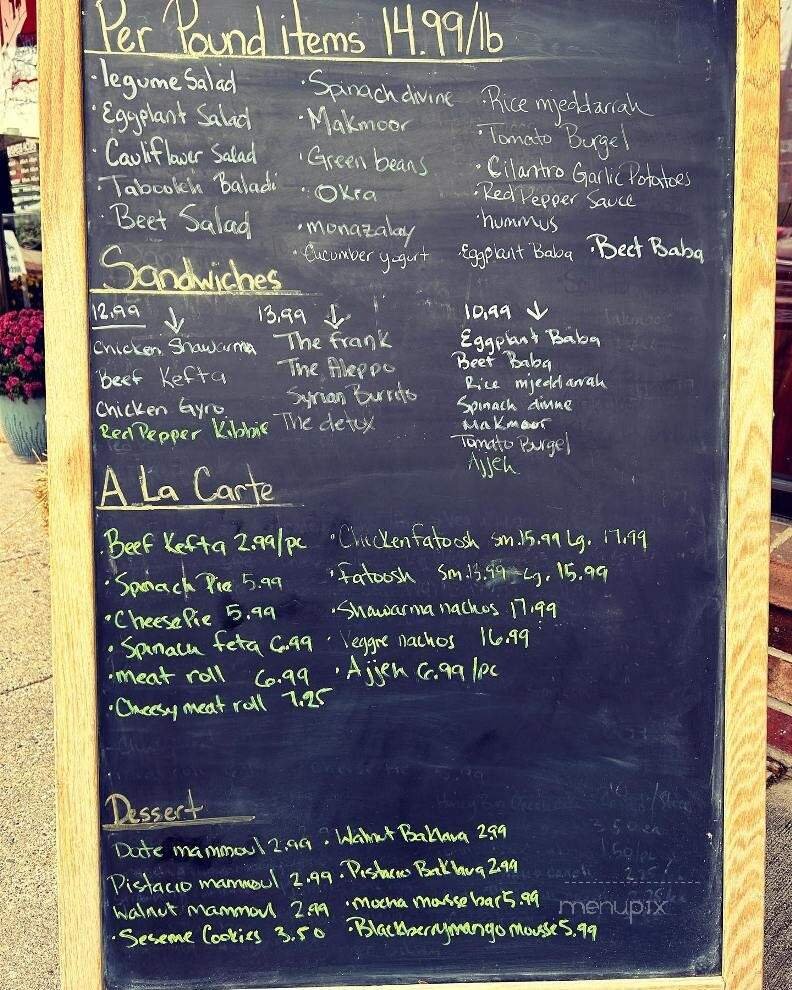 Per Pound items 14.99/lb
• legume Salad
• Eggplant Salad
• Cauliflower Salad
• Tabouleh Baladi
• Beet Salad
• Spinach divine
• Makmoor
• Green beans
• Okra
• monazalay
• Cucumber yogurt
• Rice mjeddarrah
• Tomato Burgel
• Cilantro Garlic Potatoes
• Red Pepper Sauce
• hummus
• Eggplant Baba • Beet Baba
Sandwiches
12.99 ↓
Chicken Shawarma
Beef Kefta
Chicken Gyro
Red Pepper Kibbie
13.99 ↓
The frank
The Aleppo
Syrian Burrito
The detox
10.99 ↓
Eggplant Baba
Beet Baba
Rice mjeddarrah
Spinach divine
Makmoor
Tomato Burgel
Ajjeh
A La Carte
• Beef Kefta 2.99/pc
• Spinach Pie 5.99
• Cheese Pie 5.99
• Spinach feta 6.99
• meat roll 6.99
• Cheesy meat roll 7.25
• Chicken fatoosh sm. 15.99 Lg. 17.99
• fatoosh sm. 13.99 Lg. 15.99
• Shawarma nachos 17.99
• Veggie nachos 16.99
• Ajjeh 6.99/pc
Dessert
Date mammoul 2.99
Pistacio mammoul 2.99
Walnut mammoul 2.99
• Seseme Cookies 3.50
• Walnut Baklava 2.99
• Pistacio Baklava 2.99
• mocha mousse bar 5.99
• Blackberry mango mousse 5.99
menupix